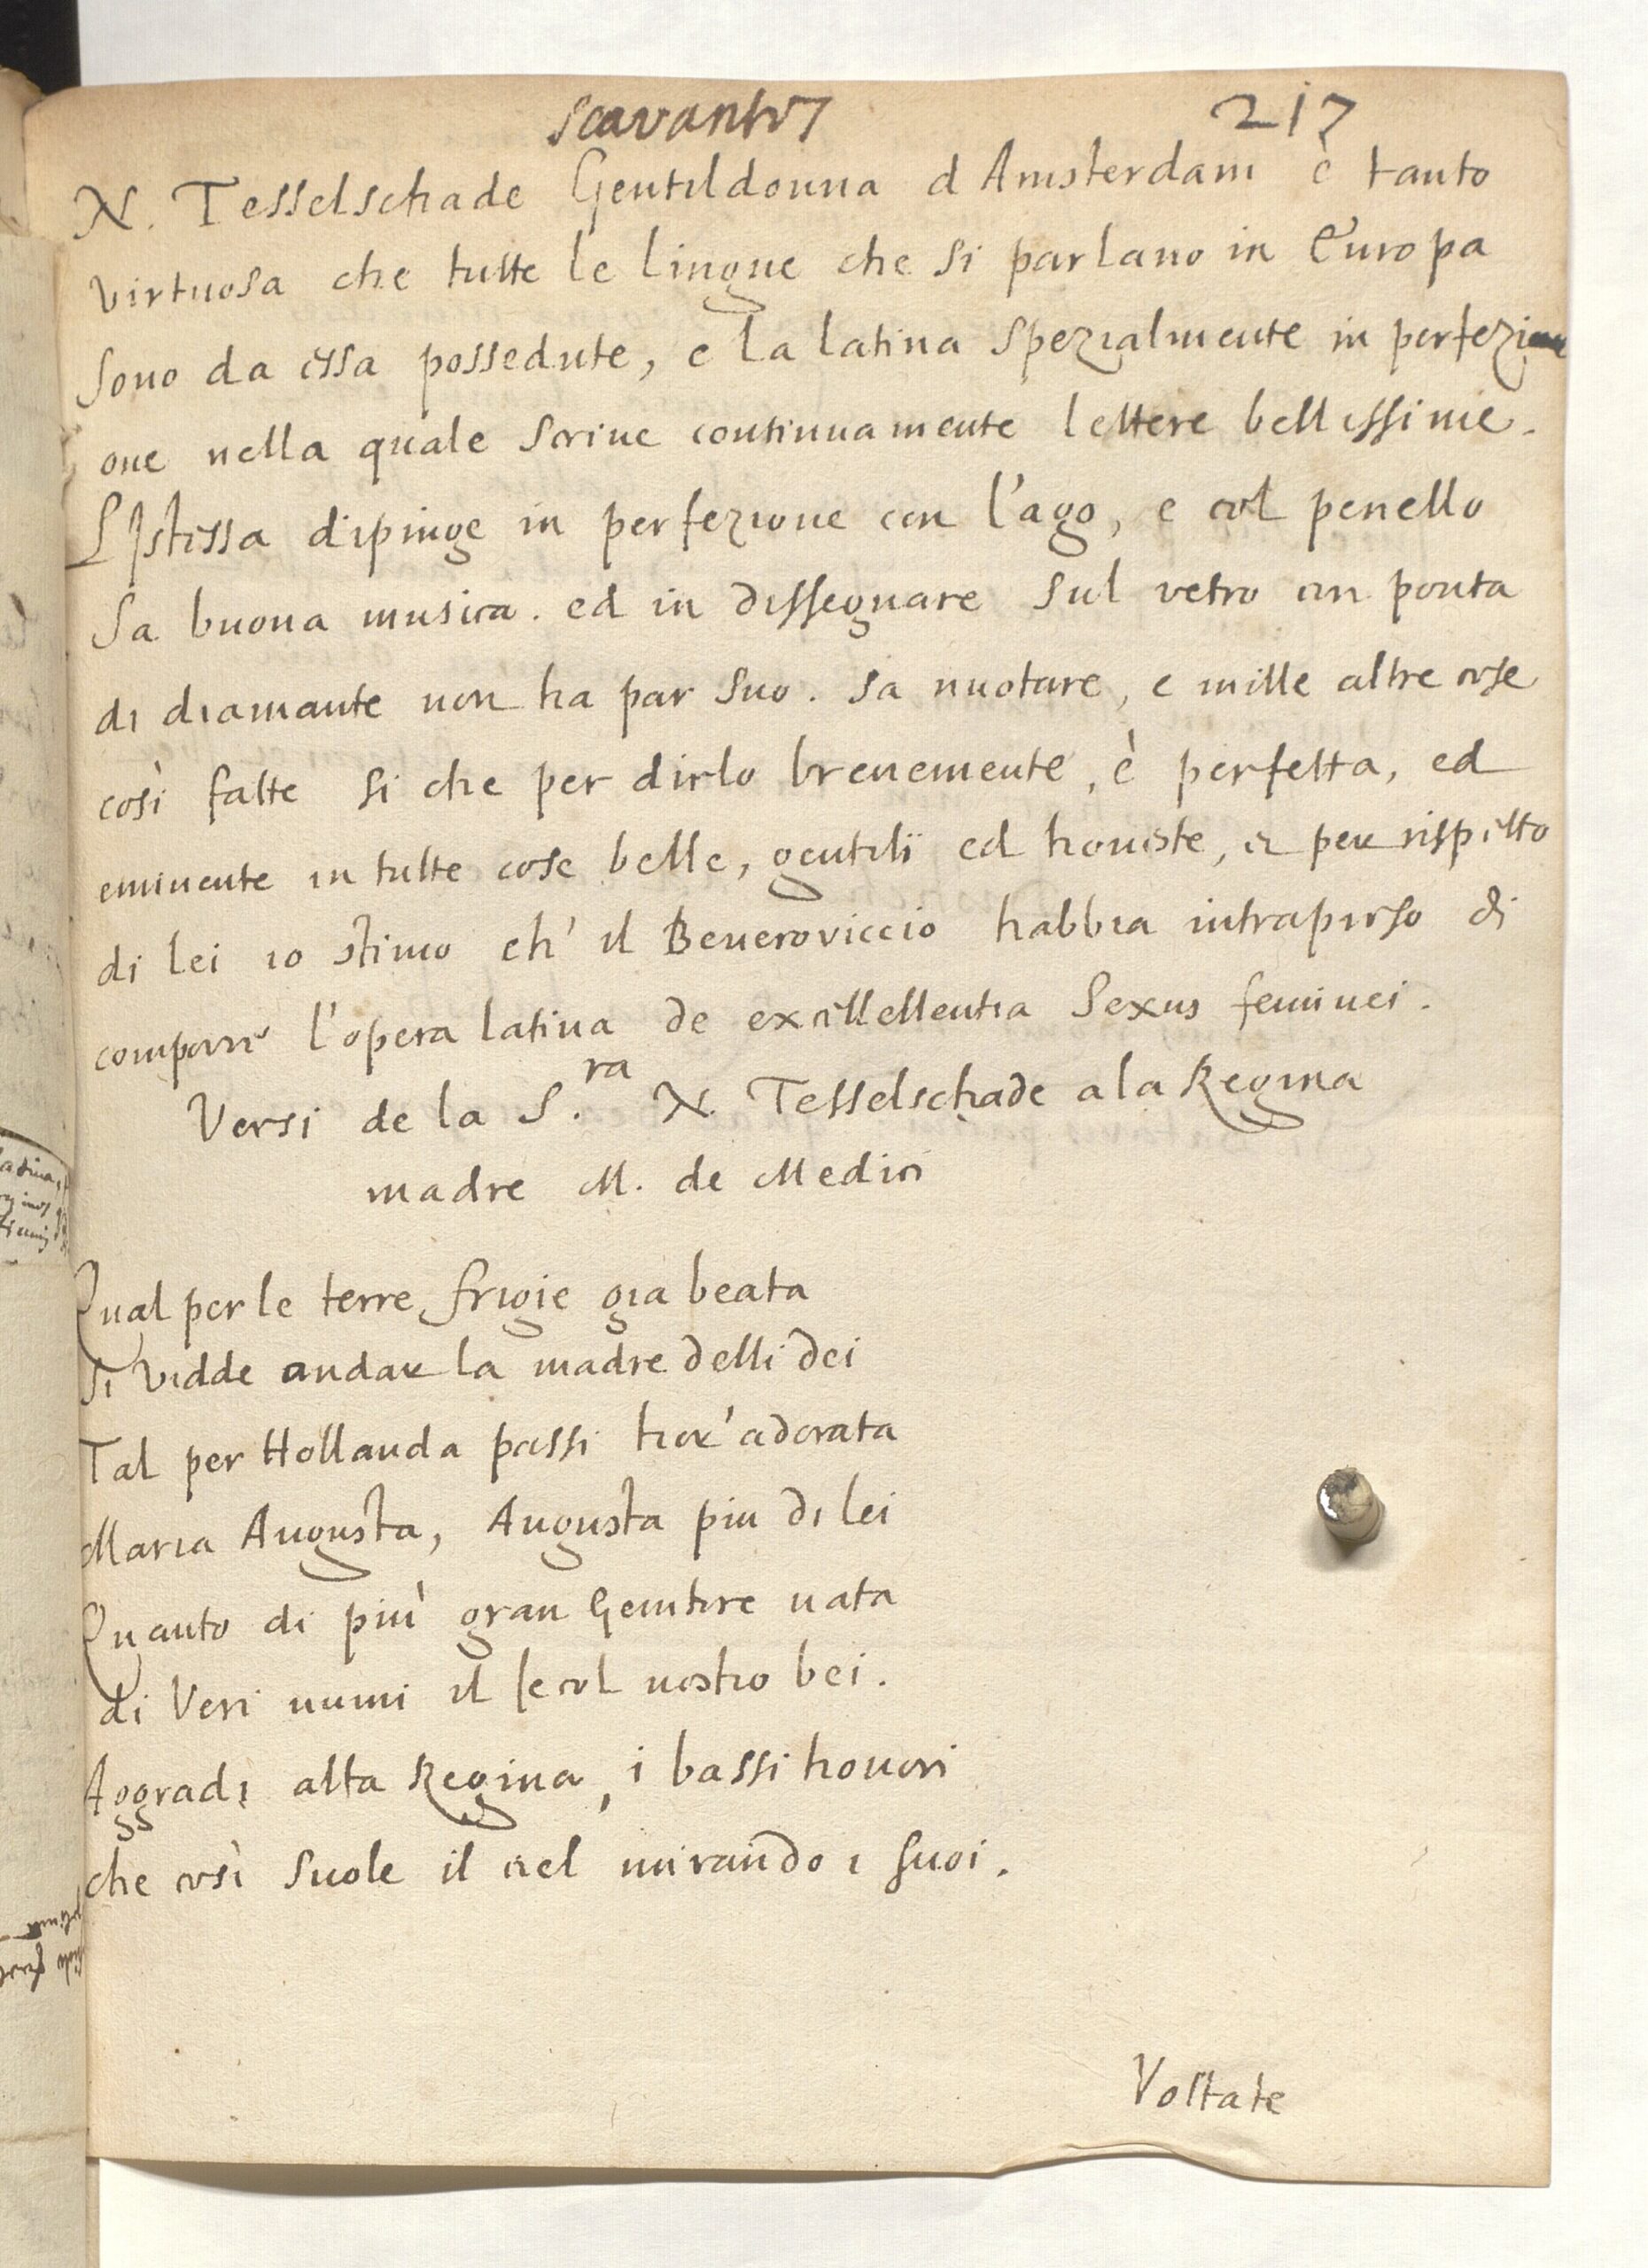 scavantes 217
N. Tesselschade Gentildonna d Amsterdam è tanto
virtuosa che tutte le lingue che si parlano in Europa
sono da essa possedute, e la latina spezialmente in perfezi
one nella quale scriue continuamente lettere bellissime.
L'Istessa dipinge in perfezione con l'ago, e col penello
Sa buona musica. ed in dissegnare sul vetro con ponta
di diamante non ha par suo. sa nuotare, e mille altre cose
così fatte si che per dirlo breuemente, è perfetta, ed
eminente in tutte cose belle, gentili ed honeste, et per rispetto
di lei io stimo ch' il Beueroviccio habbia intrapreso di
comporre l'opera latina de excellellentia Sexus feminei.
Versi de la S.ra N. Tesselschade a la Regina
madre M. de Medici
Qual per le terre frigie gia beata
Si vidde andar la madre delli dei
Tal per Hollanda passi hor' adorata
Maria Augusta, Augusta piu di lei
Quanto di più gran Genitore nata
di Veri numi il secol nostro bei.
Aggradi alta Regina, i bassi honori
che così suole il ciel mirando i suoi.
Voltate